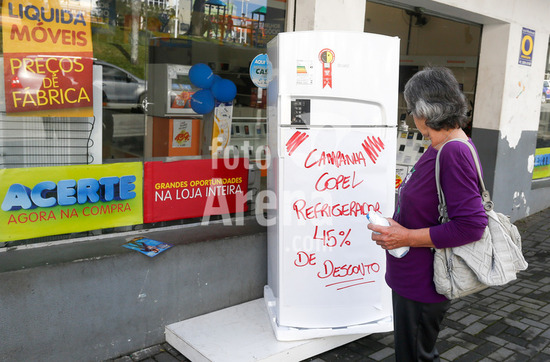 LIQUIDA
MÓVEIS
PREÇOS
DE
FÁBRICA
ACERTE
AGORA NA COMPRA
GRANDES OPORTUNIDADES
NA LOJA INTEIRA
AQUI
CASAS
CAMPANHA
COPEL
REFRIGERADOR
45%
DE DESCONTO
foto
Arena
.com